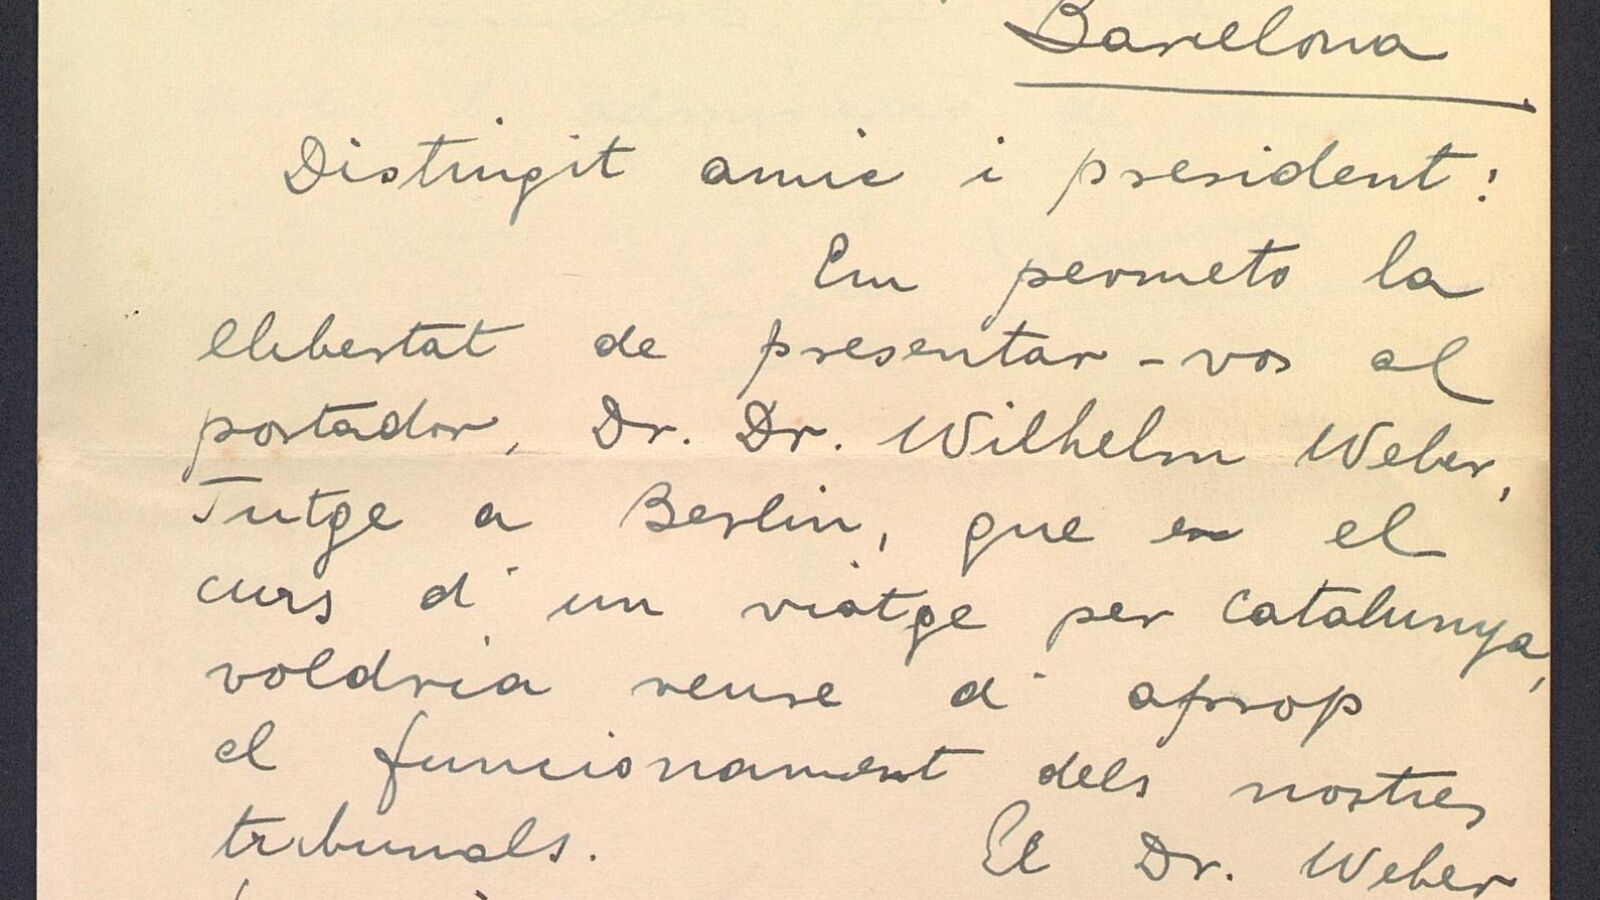 Barcelona
Distingit amic i president:
Em permeto la
llibertat de presentar-vos al
portador, Dr. Dr. Wilhelm Weber,
Jutge a Berlin, que en el
curs d'un viatge per Catalunya,
voldria veure d'aprop
el funcionament dels nostres
tribunals. El Dr. Weber